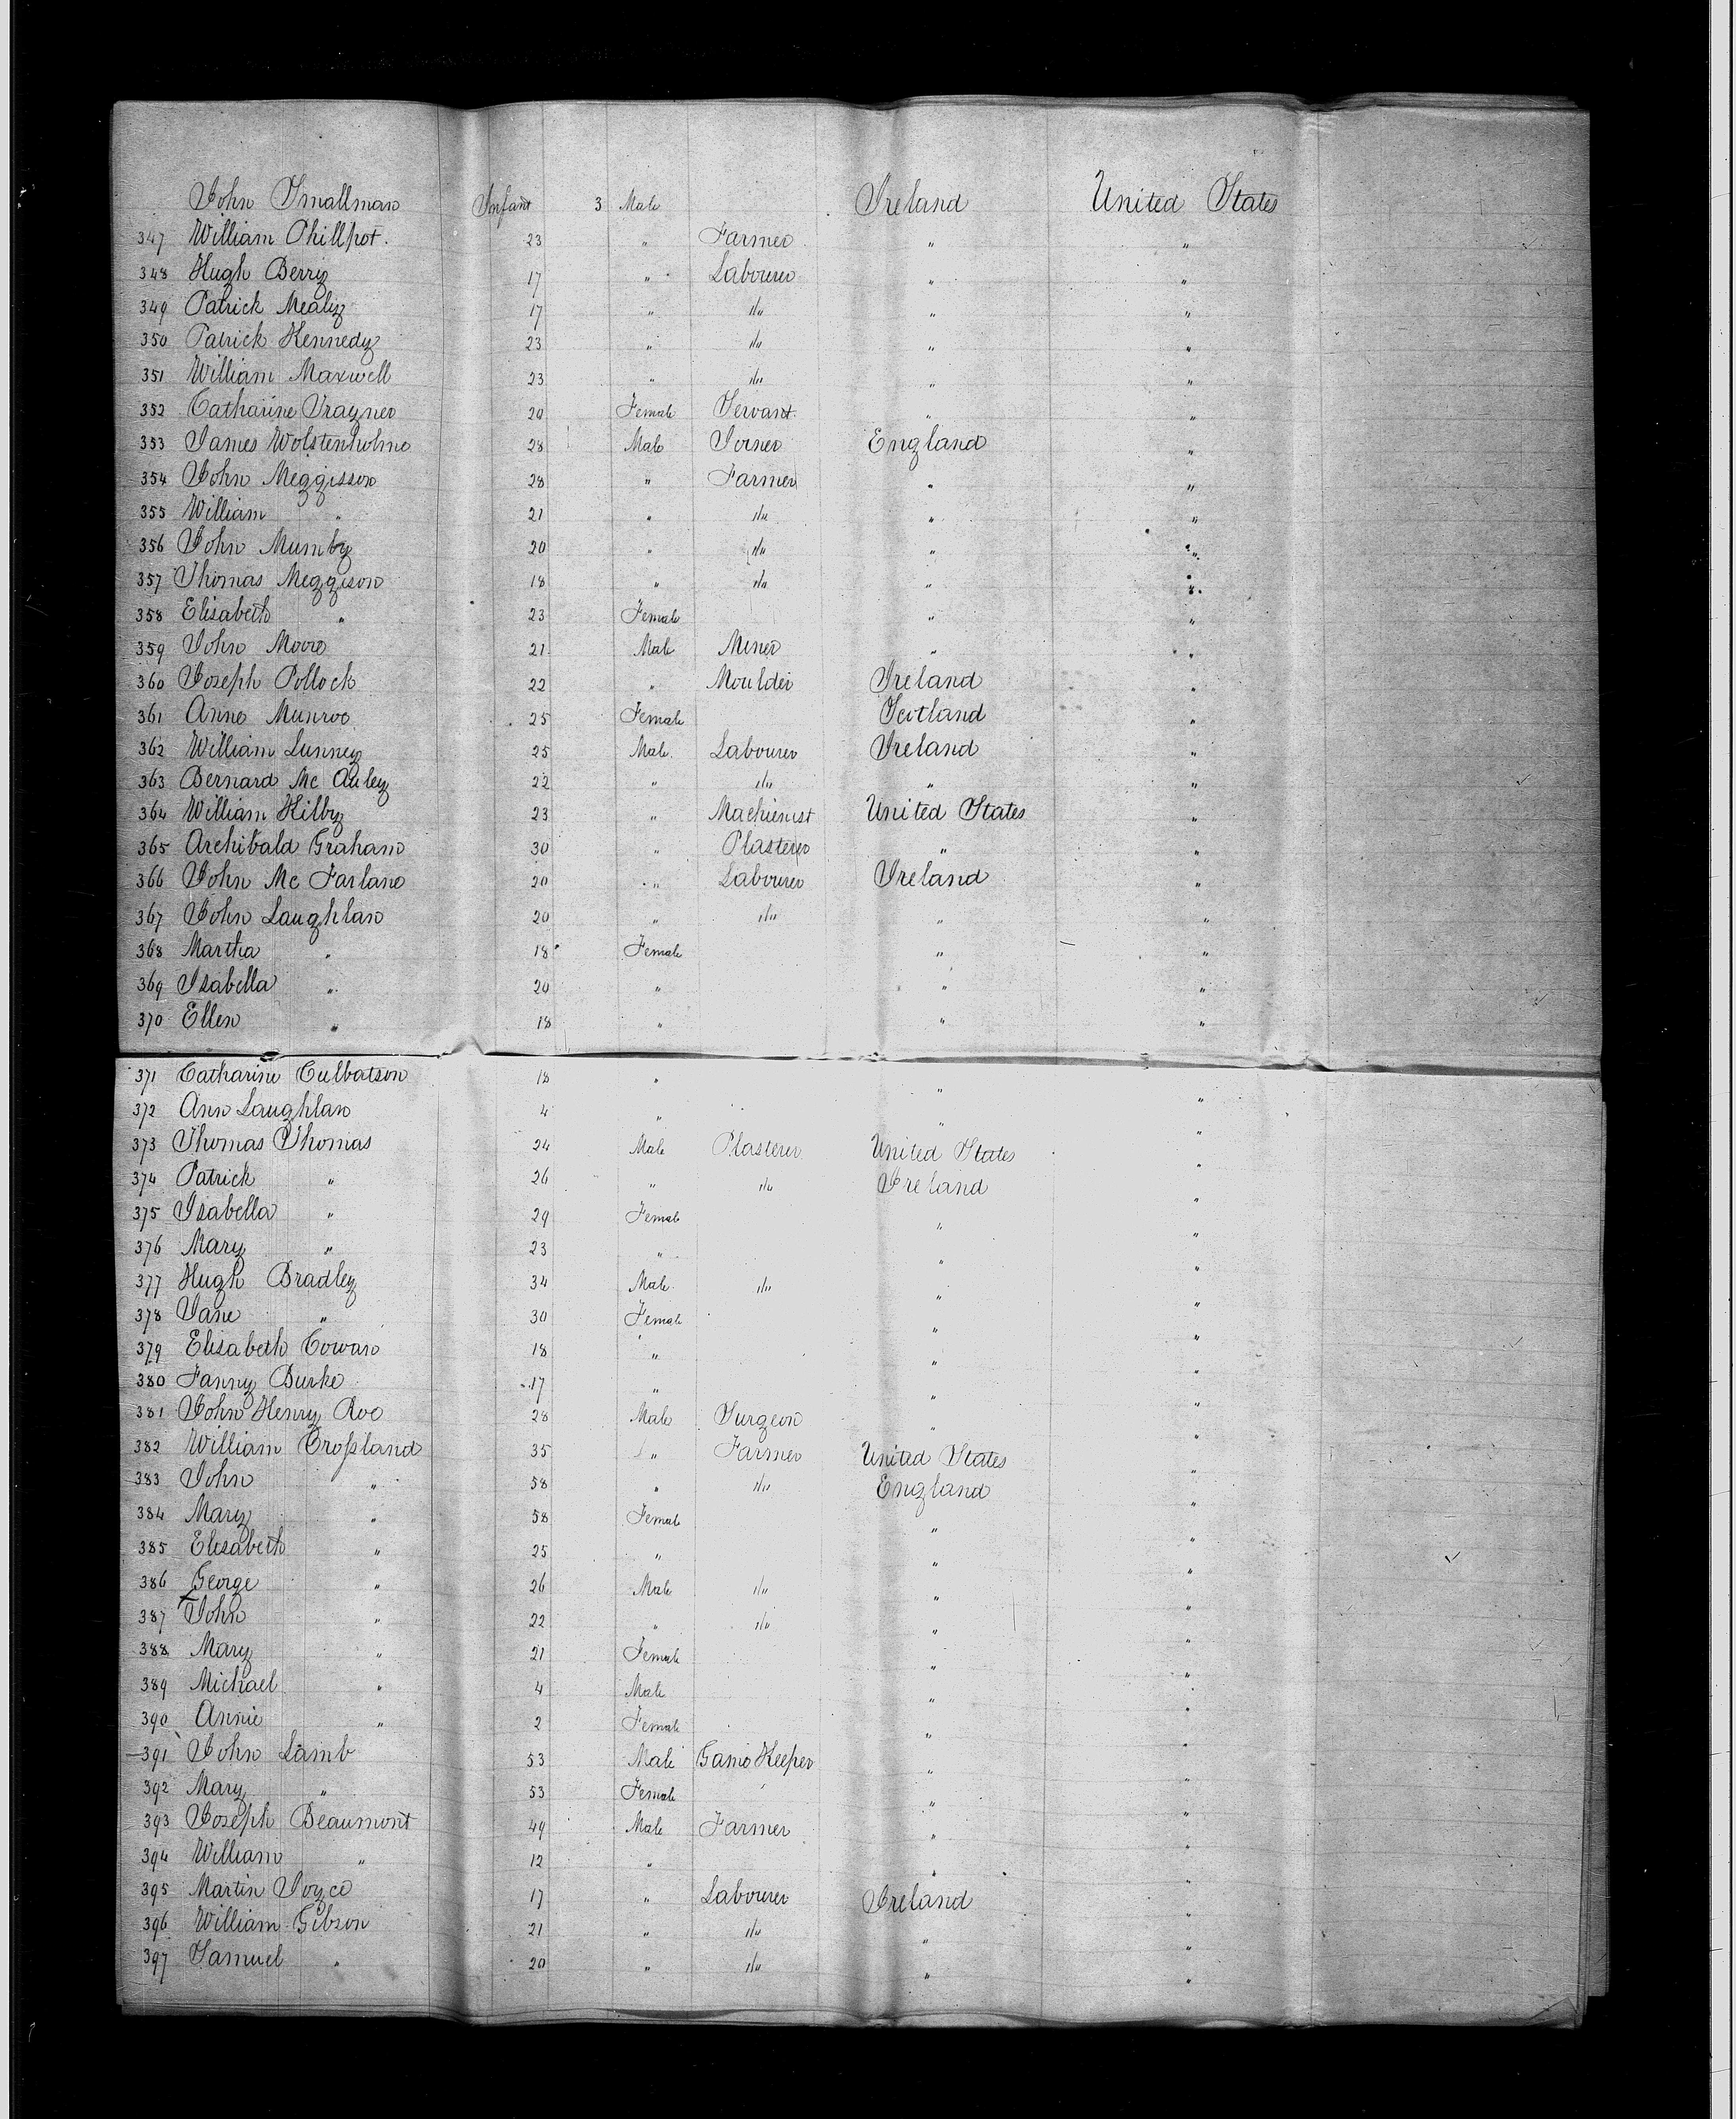 John Smallman Infant 3 Male Ireland United States
347 William Phillpot. 23 " Farmer " "
348 Hugh Berry 17 " Labourer " "
349 Patrick Mealy 17 " "/" " "
350 Patrick Kennedy 23 " "/" " "
351 William Maxwell 23 " "/" " "
352 Catharine Traynor 20 Female Servant " "
353 James Wolstenholme 28 Male Joiner England "
354 John Meggisson 28 " Farmer " "
355 William " 21 " "/" " "
356 John Mumby 20 " "/" " "
357 Thomas Meggison 18 " "/" " "
358 Elisabeth " 23 Female " "
359 John Moore 21 Male Miner " "
360 Joseph Pollock 22 " Moulder Ireland "
361 Anne Munroe 25 Female Scotland "
362 William Lunney 25 Male Labourer Ireland "
363 Bernard Mc Auley 22 " "/" " "
364 William Kilby 23 " Machienist United States "
365 Archibald Graham 30 " Plasterer " "
366 John Mc Farlane 20 " Labourer Ireland "
367 John Laughlan 20 " "/" " "
368 Martha " 18 Female " "
369 Isabella " 20 " " "
370 Ellen " 18 " " "
371 Catharine Culbatson 18 " " "
372 Ann Laughlan 4 " " "
373 Thomas Thomas 24 Male Plasterer United States "
374 Patrick " 26 " "/" Ireland "
375 Isabella " 29 Female " "
376 Mary " 23 " " "
377 Hugh Bradley 34 Male "/" " "
378 Jane " 30 Female " "
379 Elisabeth Cowan 18 " " "
380 Fanny Burke 17 " " "
381 John Henry Roe 28 Male Surgeon " "
382 William Croſsland 35 " Farmer United States "
383 John " 58 " "/" England "
384 Mary " 58 Female " "
385 Elisabeth " 25 " " "
386 George " 26 Male "/" " "
387 John " 22 " "/" " "
388 Mary " 21 Female " "
389 Michael " 4 Male " "
390 Annie " 2 Female " "
391 John Lamb 53 Male Game Keeper " "
392 Mary " 53 Female " "
393 Joseph Beaumont 49 Male Farmer " "
394 William " 12 " " "
395 Martin Joyce 17 " Labourer Ireland "
396 William Gibson 21 " "/" " "
397 Samuel " 20 " "/" " "